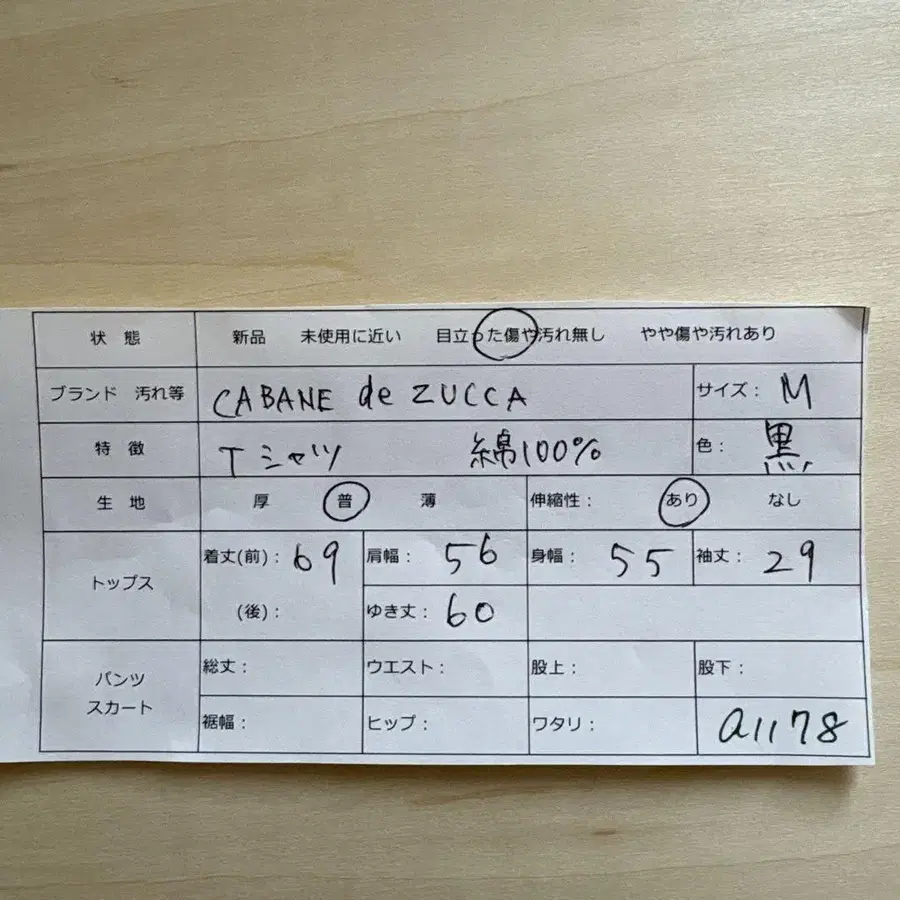 状 態 新品 未使用に近い 目立った傷や汚れ無し やや傷や汚れあり
ブランド 汚れ等 CABANE de ZUCCA サイズ: M
特 徴 Tシャツ 綿100% 色: 黒
生 地 厚 普 薄 伸縮性: あり なし
トップス 着丈(前): 69 肩幅: 56 身幅: 55 袖丈: 29
(後): ゆき丈: 60
パンツ スカート 総丈: ウエスト: 股上: 股下:
裾幅: ヒップ: ワタリ: a1178